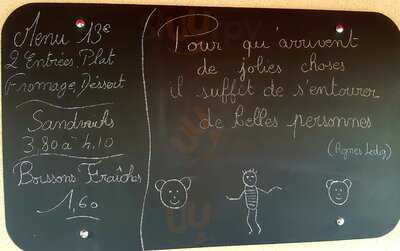 Menu 13€
2 Entrées, Plat
Fromage, Dessert
Sandwichs
3,80 à 4,10
Boissons Fraîches
1,60
Pour qu'arrivent
de jolies choses
il suffit de s'entourer
de belles personnes
(Agnes Ledig)